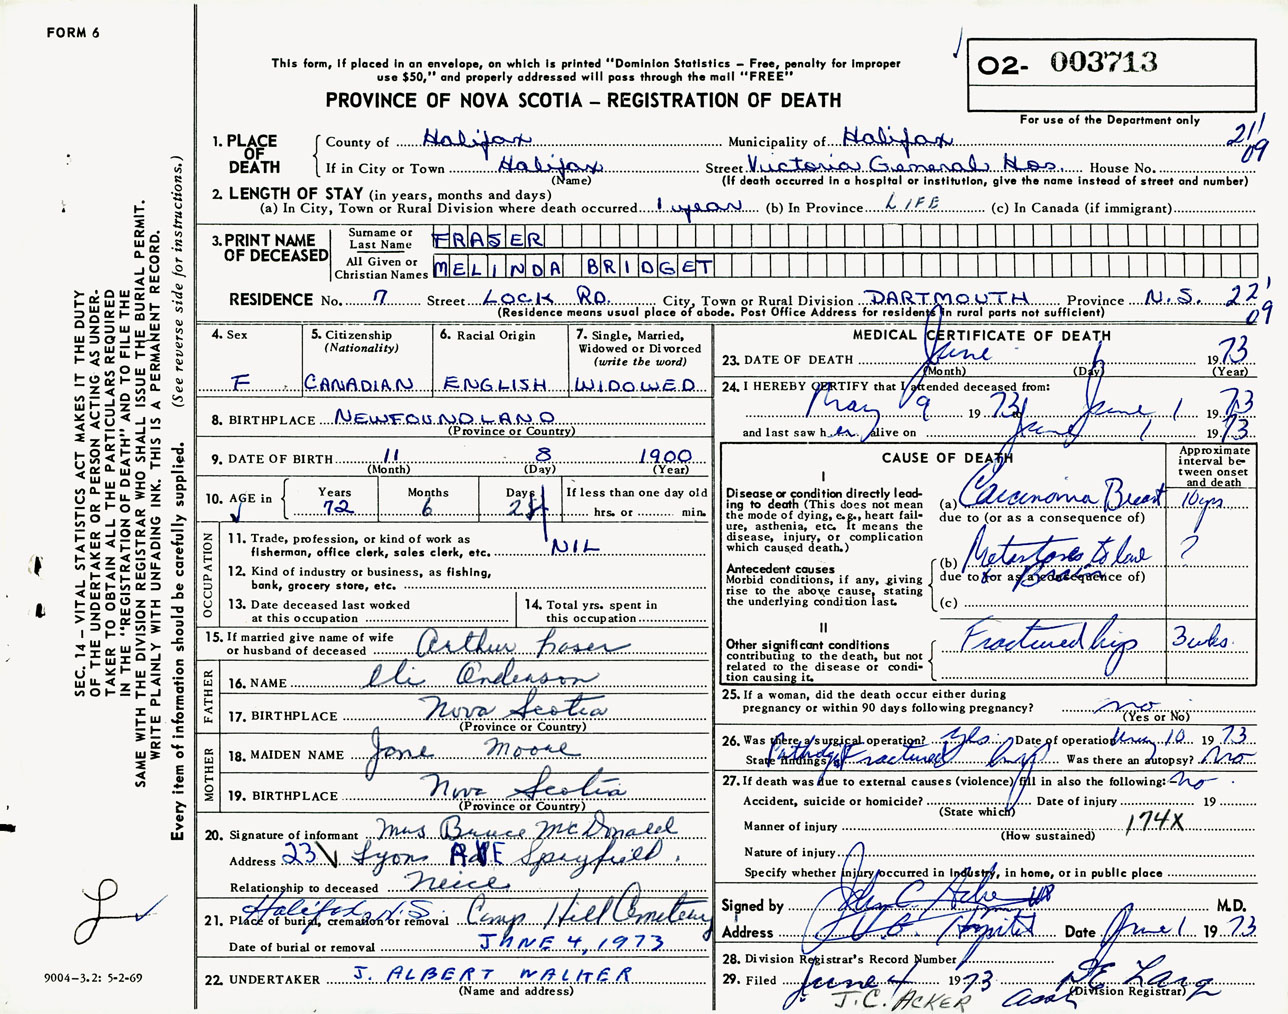 FORM 6
This form, if placed in an envelope, on which is printed "Dominion Statistics – Free, penalty for improper
use $50," and properly addressed will pass through the mail "FREE"
PROVINCE OF NOVA SCOTIA – REGISTRATION OF DEATH
O2- 003713
For use of the Department only
SEC. 14 – VITAL STATISTICS ACT MAKES IT THE DUTY
OF THE UNDERTAKER OR PERSON ACTING AS UNDER-
TAKER TO OBTAIN ALL THE PARTICULARS REQUIRED
IN THE "REGISTRATION OF DEATH" AND TO FILE THE
SAME WITH THE DIVISION REGISTRAR WHO SHALL ISSUE THE BURIAL PERMIT.
WRITE PLAINLY WITH UNFADING INK. THIS IS A PERMANENT RECORD.
Every item of information should be carefully supplied. (See reverse side for instructions.)
1. PLACE OF DEATH
County of Halifax Municipality of Halifax
21' 09
If in City or Town Halifax Street Victoria General Hos. House No.
(Name) (If death occurred in a hospital or institution, give the name instead of street and number)
2. LENGTH OF STAY (in years, months and days)
(a) In City, Town or Rural Division where death occurred 1 year (b) In Province LIFE (c) In Canada (if immigrant)
3. PRINT NAME OF DECEASED
Surname or Last Name FRASER
All Given or Christian Names MELINDA BRIDGET
RESIDENCE No. 7 Street LOCK RD. City, Town or Rural Division DARTMOUTH Province N.S. 22' 09
(Residence means usual place of abode. Post Office Address for residents in rural parts not sufficient)
4. Sex F
5. Citizenship (Nationality) CANADIAN
6. Racial Origin ENGLISH
7. Single, Married, Widowed or Divorced (write the word) WIDOWED
8. BIRTHPLACE NEWFOUNDLAND
(Province or Country)
9. DATE OF BIRTH 11 8 1900
(Month) (Day) (Year)
10. AGE in Years 72 Months 6 Days If less than one day old hrs. or min.
OCCUPATION
11. Trade, profession, or kind of work as
fisherman, office clerk, sales clerk, etc. NIL
12. Kind of industry or business, as fishing,
bank, grocery store, etc.
13. Date deceased last worked
at this occupation
14. Total yrs. spent in
this occupation
15. If married give name of wife
or husband of deceased Arthur Fraser
FATHER
16. NAME Eli Anderson
17. BIRTHPLACE Nova Scotia
(Province or Country)
MOTHER
18. MAIDEN NAME Jane Moore
19. BIRTHPLACE Nova Scotia
(Province or Country)
20. Signature of informant Mrs Bruce McDonald
Address 23 Lyons AVE Spryfield.
Relationship to deceased Neice
21. Place of burial, cremation or removal Camp Hill Cemetery
Halifax N.S.
Date of burial or removal JUNE 4, 1973
22. UNDERTAKER J. ALBERT WALKER
(Name and address)
MEDICAL CERTIFICATE OF DEATH
23. DATE OF DEATH June 1 1973
(Month) (Day) (Year)
24. I HEREBY CERTIFY that I attended deceased from:
May 9 1973 June 1 1973
and last saw her alive on June 1 1973
CAUSE OF DEATH
Approximate interval between onset and death
I
Disease or condition directly lead-
ing to death (This does not mean
the mode of dying, e.g., heart fail-
ure, asthenia, etc. It means the
disease, injury, or complication
which caused death.)
(a) Carcinoma Breast 10 yrs
due to (or as a consequence of)
Antecedent causes
Morbid conditions, if any, giving
rise to the above cause, stating
the underlying condition last.
(b) Metastases to ?
due to (or as a consequence of)
(c)
II
Other significant conditions
contributing to the death, but not
related to the disease or condi-
tion causing it.
Fractured hip 3 wks.
25. If a woman, did the death occur either during
pregnancy or within 90 days following pregnancy? no
(Yes or No)
26. Was there a surgical operation? yes Date of operation May 10 1973
State findings Fractured hip Was there an autopsy? No
27. If death was due to external causes (violence) fill in also the following: – no.
Accident, suicide or homicide? Date of injury 19
(State which)
Manner of injury 174X
(How sustained)
Nature of injury
Specify whether injury occurred in industry, in home, or in public place
Signed by M.D.
Address V.G. Hospital Date June 1 1973
28. Division Registrar's Record Number
29. Filed June 4 1973
(Division Registrar)
J.C. ACKER Asst
9004-3.2: 5-2-69